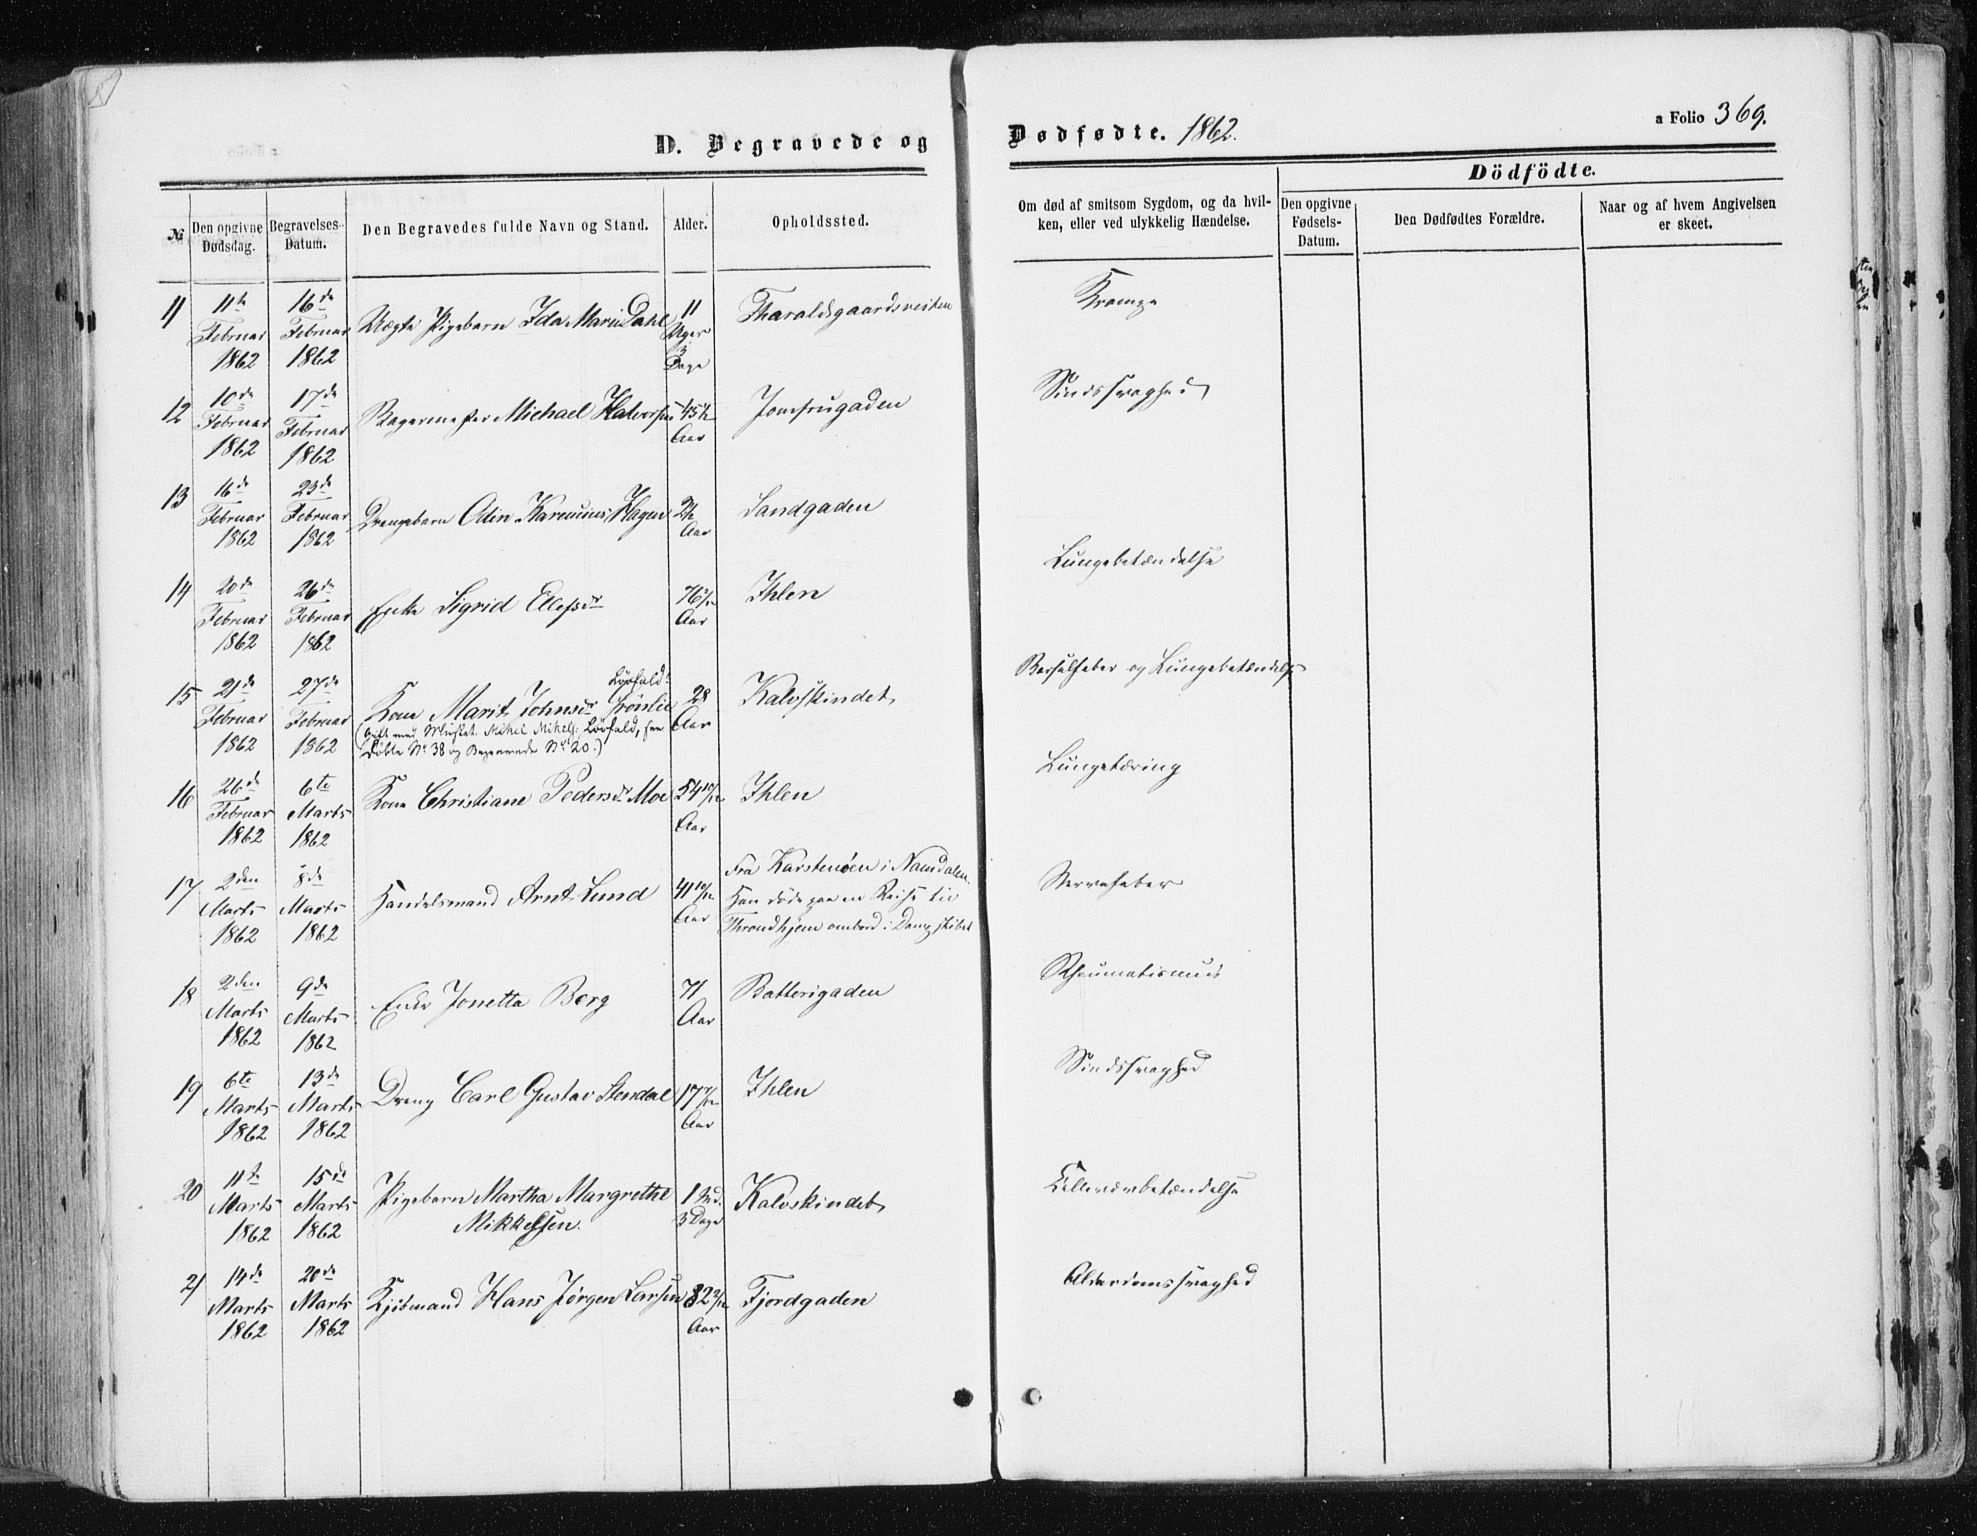 D. Begravede og Dødfødte. 1862.
a Folio 369.
№
Den opgivne Dødsdag.
Begravelses-Datum.
Den Begravedes fulde Navn og Stand.
Alder.
Opholdssted.
Om død af smitsom Sygdom, og da hvil-
ken, eller ved ulykkelig Hændelse.
Dödfödte.
Den opgivne Fødsels-Datum.
Den Dødfødtes Forældre.
Naar og af hvem Angivelsen
er skeet.
11 11te Februar 1862 16de Februar 1862 Uægte Pigebarn Ida Marie Dahl 11 Uger 3 Dage Tharaldsgaardsveiten Krampe
12 10de Februar 1862 17de Februar 1862 Bagermester Michael Halvorsen 45 Aar Jomfrugaden Sindssvaghed
13 16de Februar 1862 23de Februar 1862 Drengebarn Odin Karenius Hagen Aar Sandgaden Lungebetændelse
14 20de Februar 1862 26de Februar 1862 Enke Sigrid Ellefsdr 76 Aar Ihlen
15 21de Februar 1862 27de Februar 1862 Kone Marit Johnsdr 28 Aar Kalvskindet Barselfeber og Lungebetændelse
(Gift med Musket. Mikel Mikels. Lörfald, see
Döbte No 38 og Begravede No 20.)
16 26de Februar 1862 6te Marts 1862 Kone Christiane Pedersdr Moe 54 10/12 Aar Ihlen Lungetæring
17 2den Marts 1862 8de Marts 1862 Handelsmand Arnt Lund 41 10/12 Aar Fra Karstenøen i Namdalen.
Han døde paa en Reise til
Throndhjem ombord i Dampskibet Nervefeber
18 2den Marts 1862 9de Marts 1862 Enke Jonetta Berg 71 Aar Batterigaden Rheumatismus
19 6te Marts 1862 13de Marts 1862 Dreng Carl Gustav Stendal 17 Aar Ihlen Sindssvaghed
20 11te Marts 1862 15de Marts 1862 Pigebarn Martha Margrethe
Mikkelsen. 1 Md. 3 Dage Kalvskindet
21 14de Marts 1862 20de Marts 1862 Kjöbmand Hans Jørgen Larsen 82 Aar Fjordgaden Alderdomssvaghed